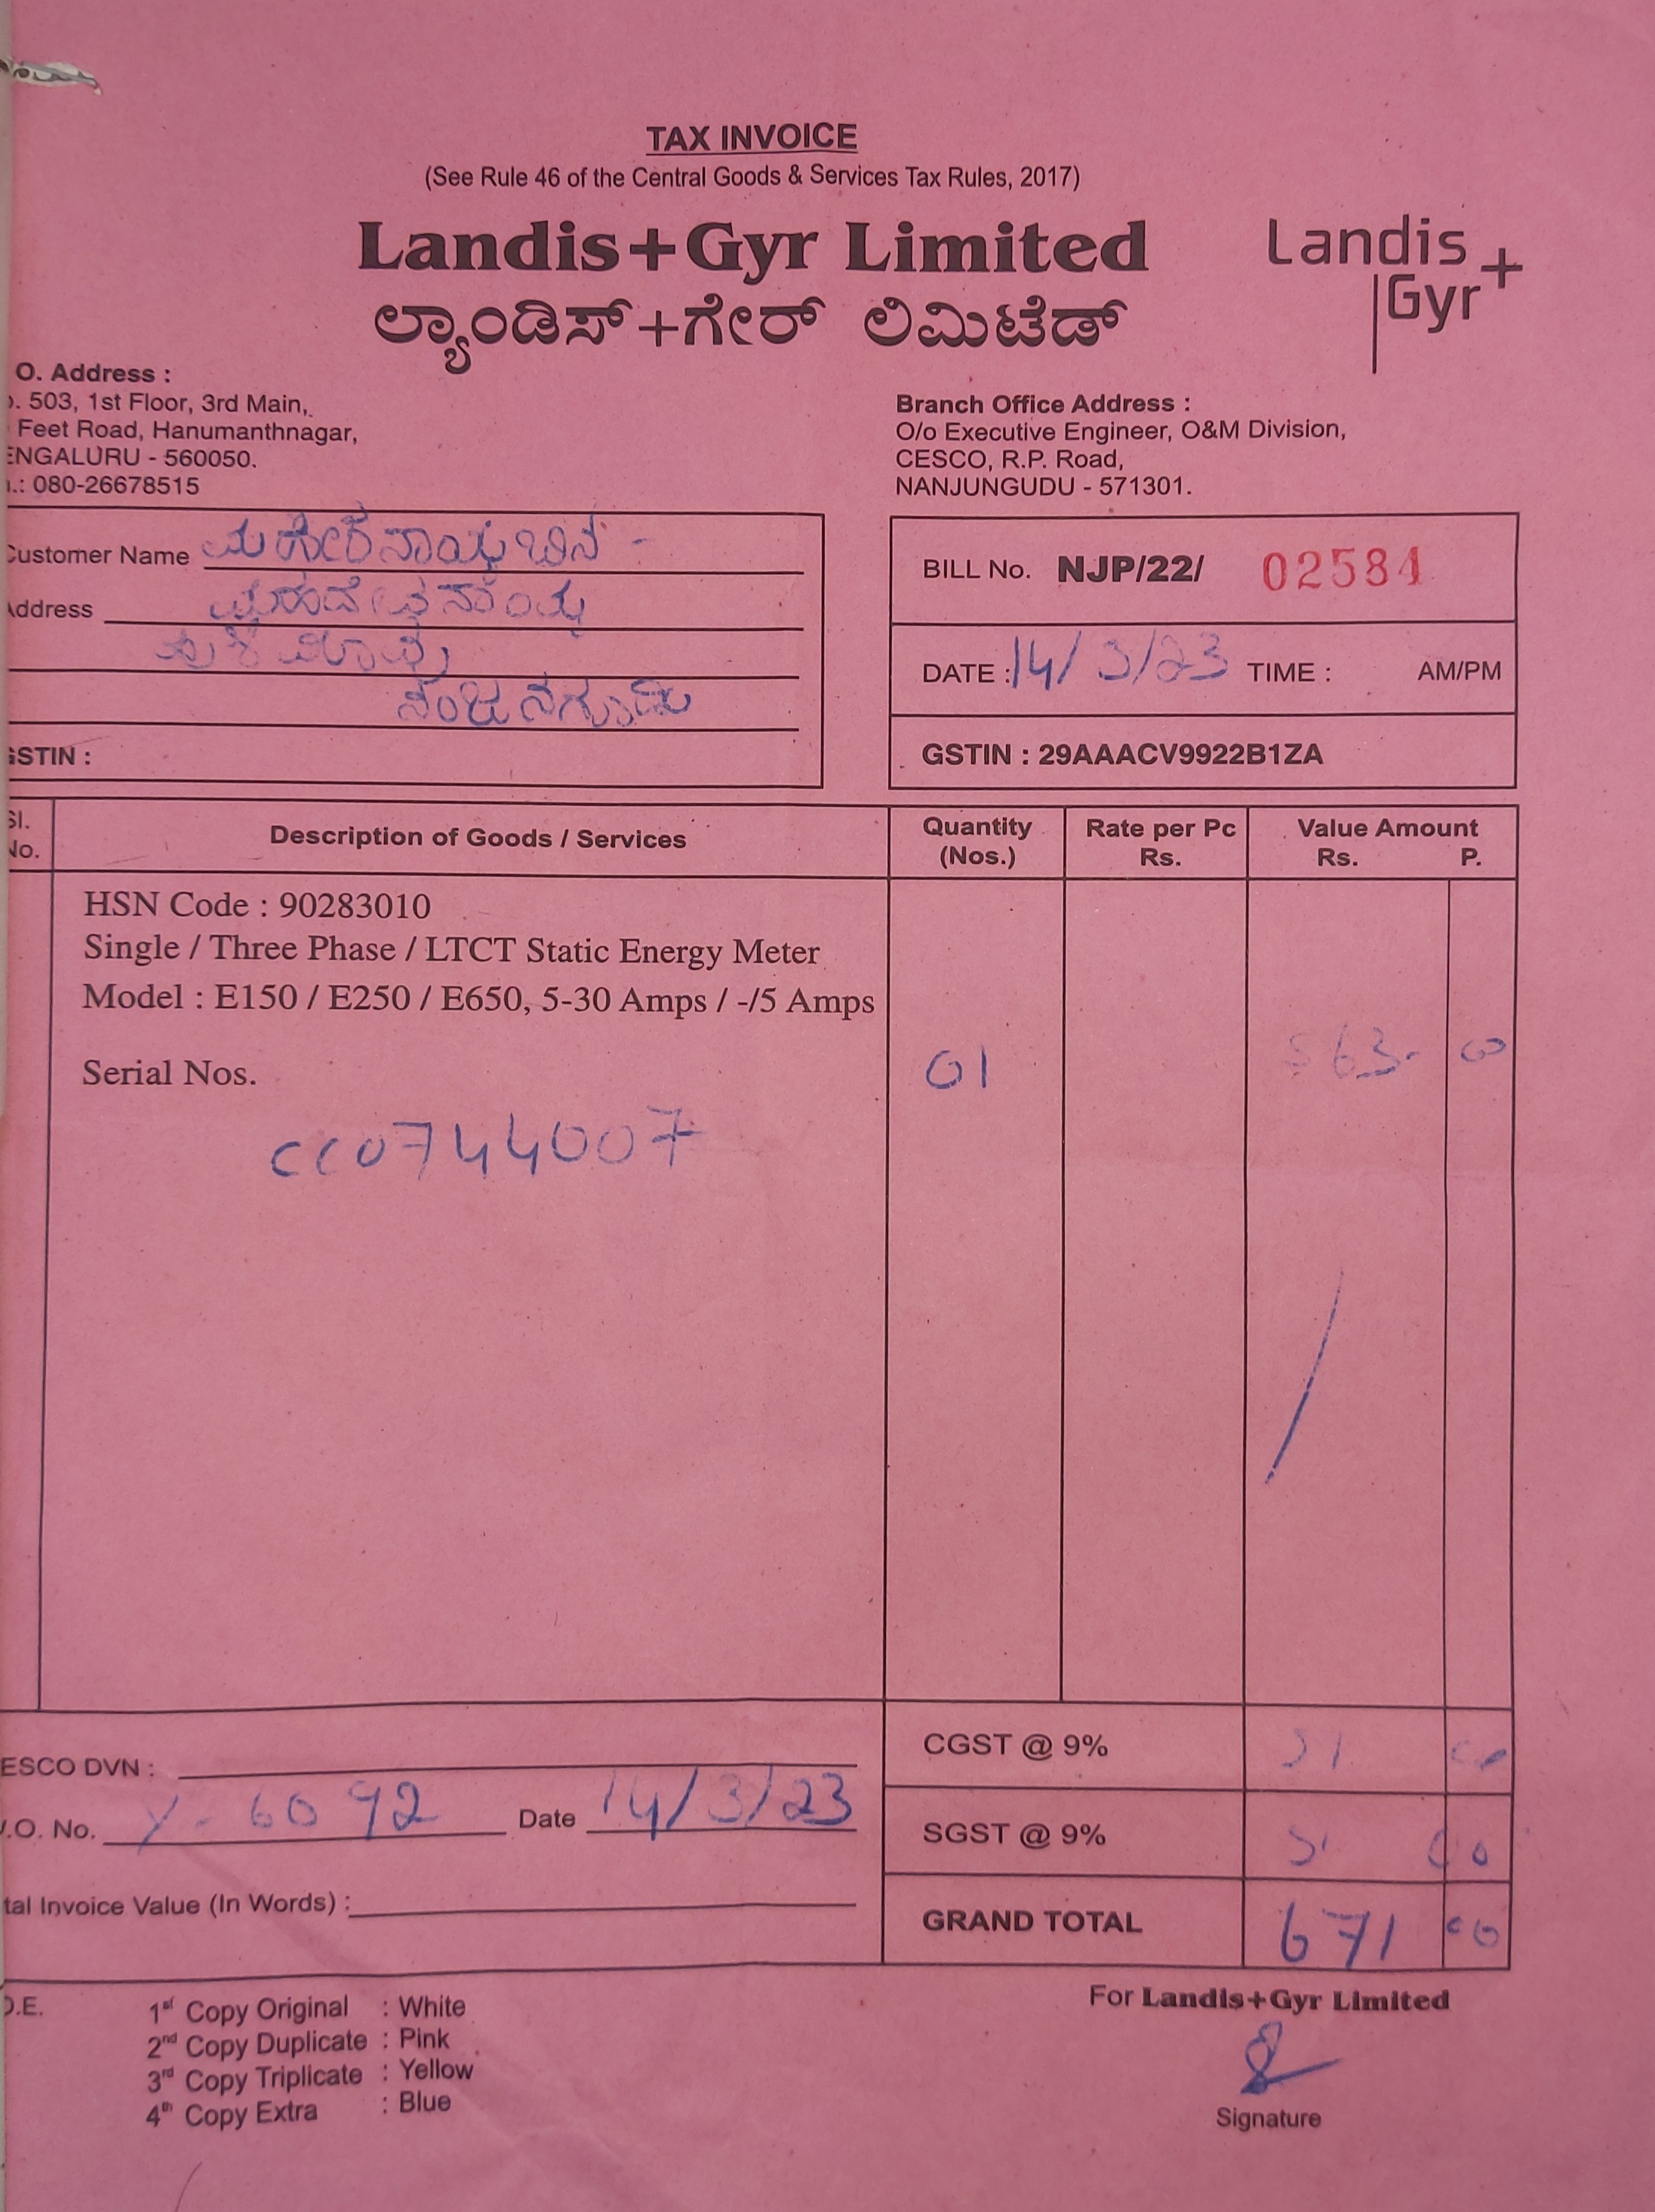 TAX INVOICE
(See Rule 46 of the Central Goods & Services Tax Rules, 2017)
Landis+Gyr Limited
ಲ್ಯಾಂಡಿಸ್+ಗೇರ್ ಲಿಮಿಟೆಡ್
Landis
Gyr+
O. Address :
. 503, 1st Floor, 3rd Main,
Feet Road, Hanumanthnagar,
ENGALURU - 560050.
.: 080-26678515
Branch Office Address :
O/o Executive Engineer, O&M Division,
CESCO, R.P. Road,
NANJUNGUDU - 571301.
Customer Name
Address
GSTIN :
BILL No. NJP/22/ 02584
DATE : 14/3/23 TIME : AM/PM
GSTIN : 29AAACV9922B1ZA
Sl. No. Description of Goods / Services Quantity (Nos.) Rate per Pc Rs. Value Amount Rs. P.
HSN Code : 90283010
Single / Three Phase / LTCT Static Energy Meter
Model : E150 / E250 / E650, 5-30 Amps / -/5 Amps
Serial Nos. 01 563- 00
CC0744007
ESCO DVN :
.O. No. Y-6092 Date 14/3/23
tal Invoice Value (In Words) :
CGST @ 9%
SGST @ 9%
GRAND TOTAL 671 00
.E.
1st Copy Original : White
2nd Copy Duplicate : Pink
3rd Copy Triplicate : Yellow
4th Copy Extra : Blue
For Landis+Gyr Limited
Signature